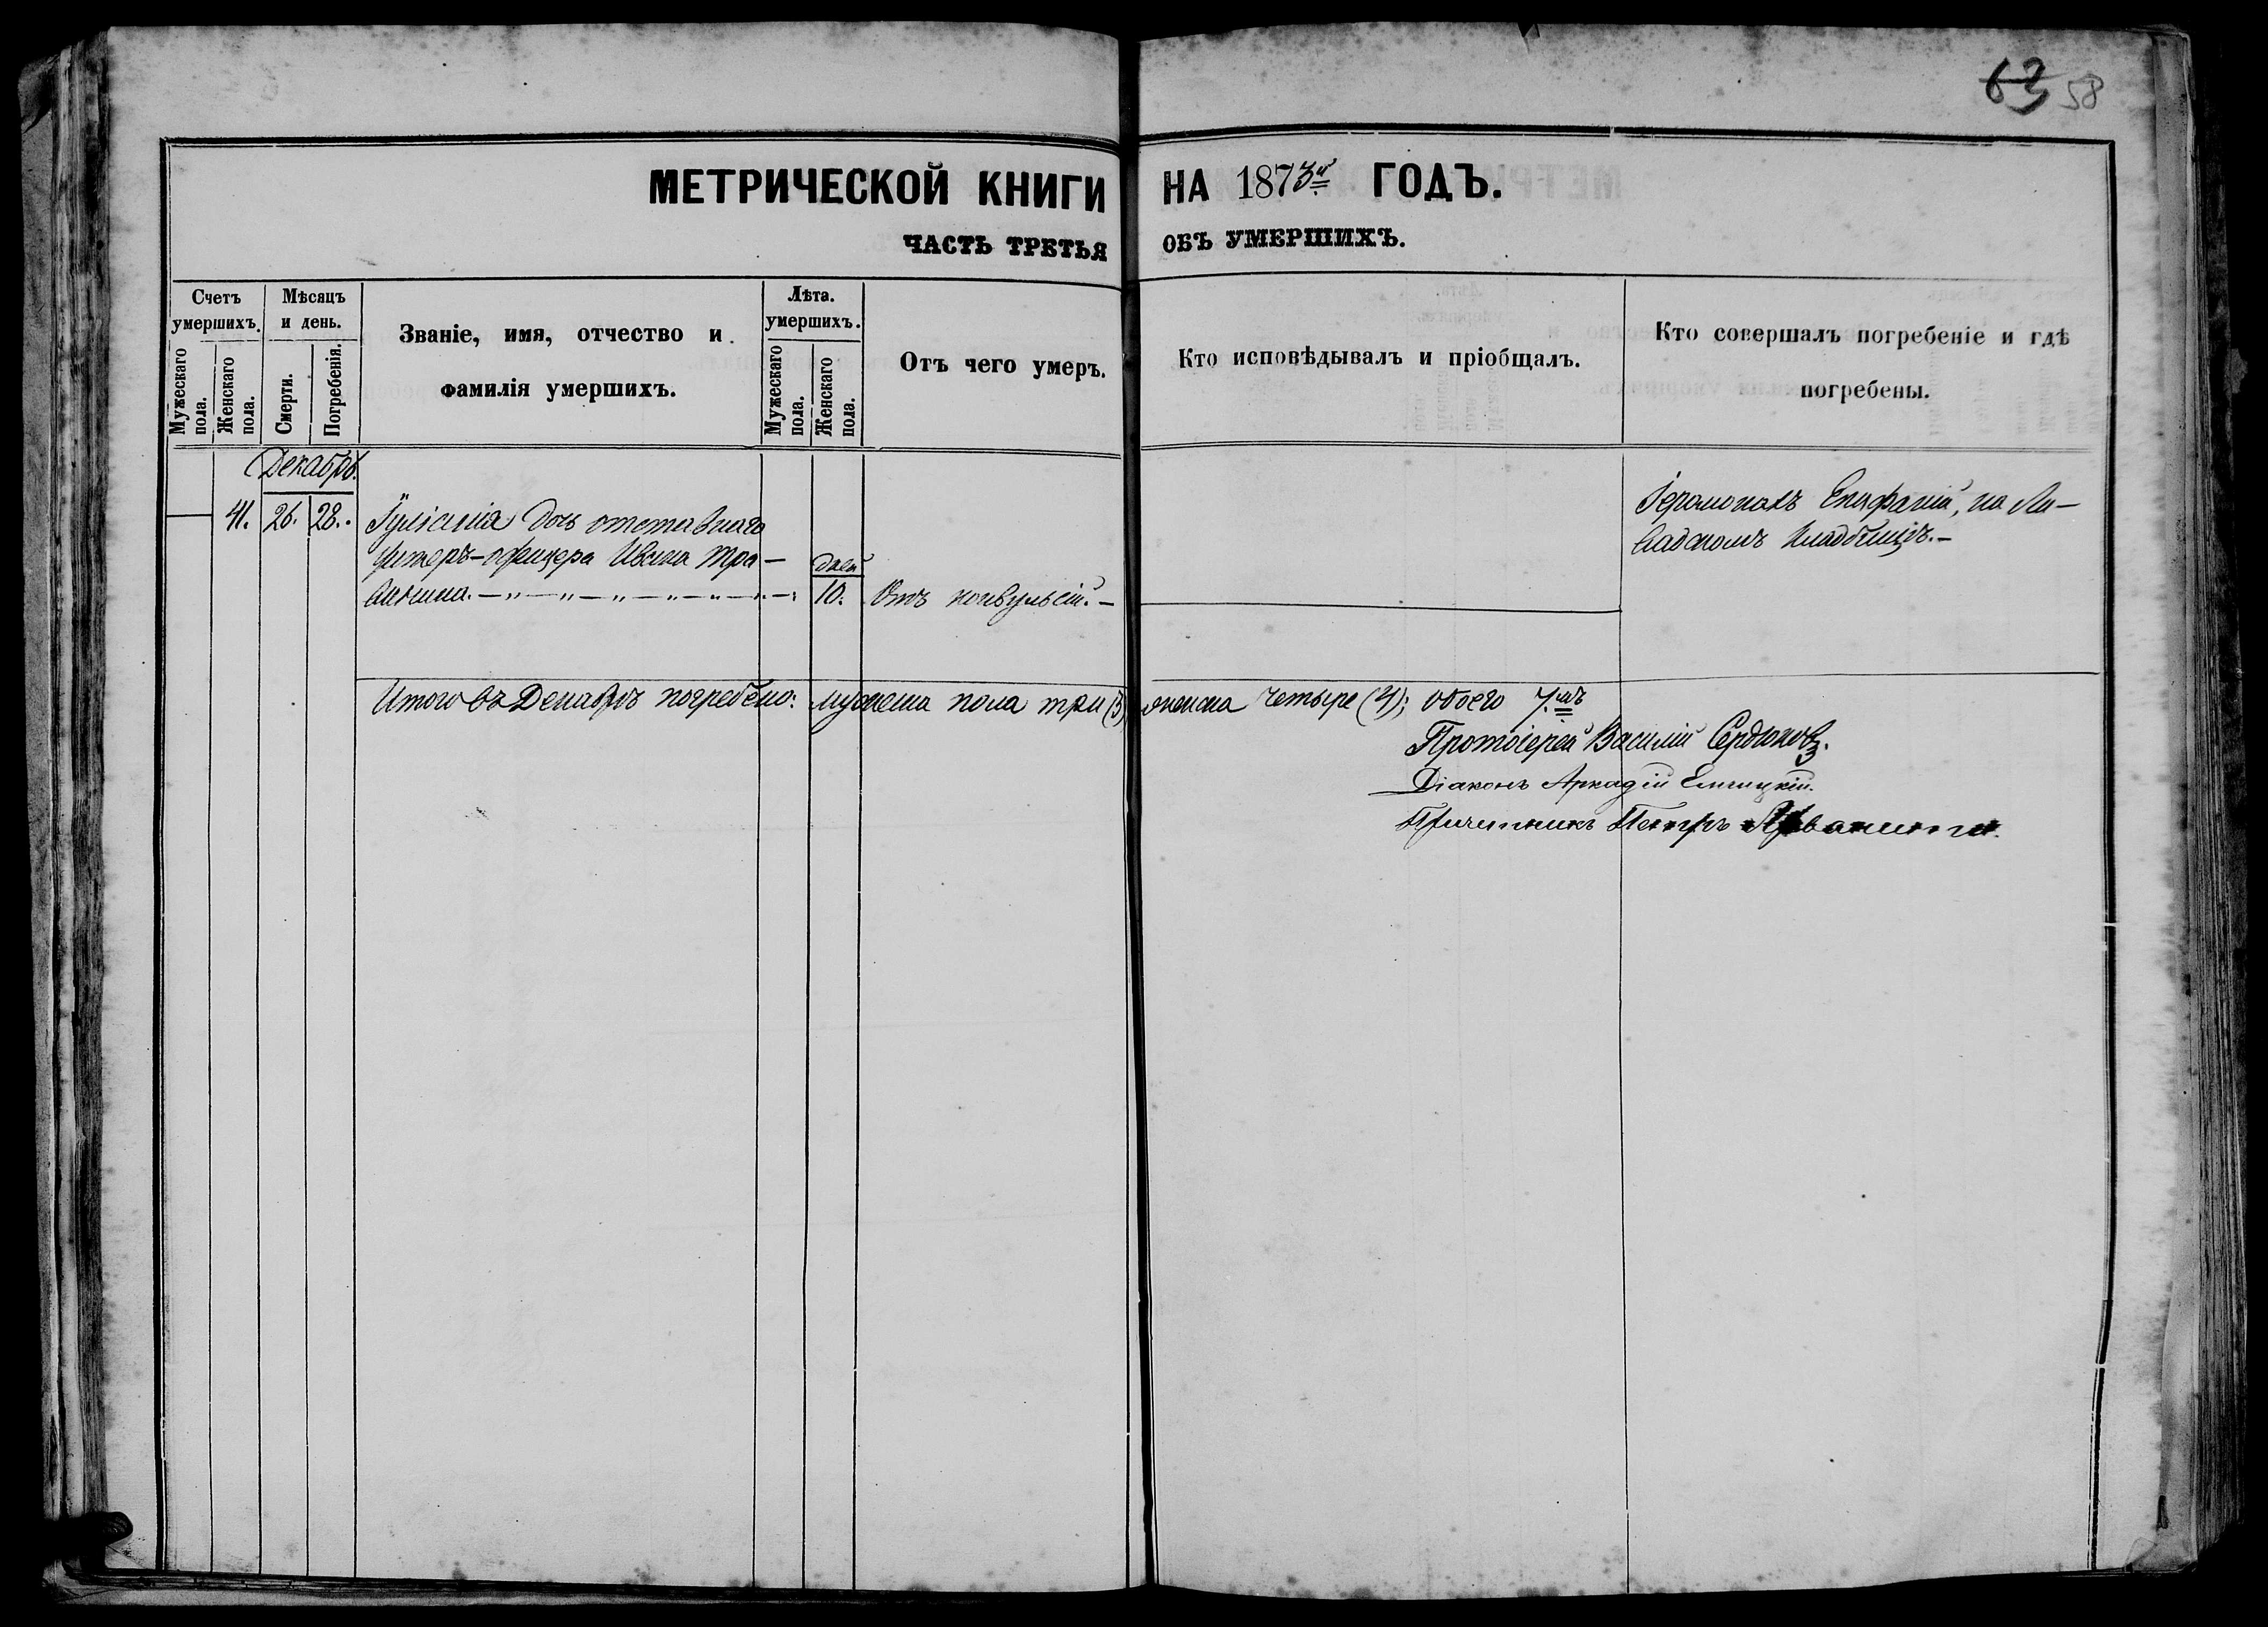 63 58
МЕТРИЧЕСКОЙ КНИГИ НА 1873й ГОДЪ.
ЧАСТЬ ТРЕТЬЯ ОБЪ УМЕРШИХЪ.
Счетъ умершихъ.
Мужескаго пола.
Женскаго пола.
Мѣсяцъ и день.
Смерти.
Погребенія.
Званіе, имя, отчество и
фамилія умершихъ.
Лѣта. умершихъ.
Мужескаго пола.
Женскаго пола.
Отъ чего умеръ.
Кто исповѣдывалъ и пріобщалъ.
Кто совершалъ погребеніе и гдѣ
погребены.
Декабрь.
41. 26. 28. Іуліанія дочь отставнаго
унтеръ-офицера Ивана Тра-
дней
10. Отъ конвульсій.-
Іеромонахъ Епифаній, на Ли-
вадскомъ кладбищѣ.-
Итого въ Декабрѣ погребено: мужеска пола три (3) женска четыре (4); обоего 7.мь
Протоіерей Василій Сердюковъ.
Діаконъ Аркадій
Причетникъ Петръ